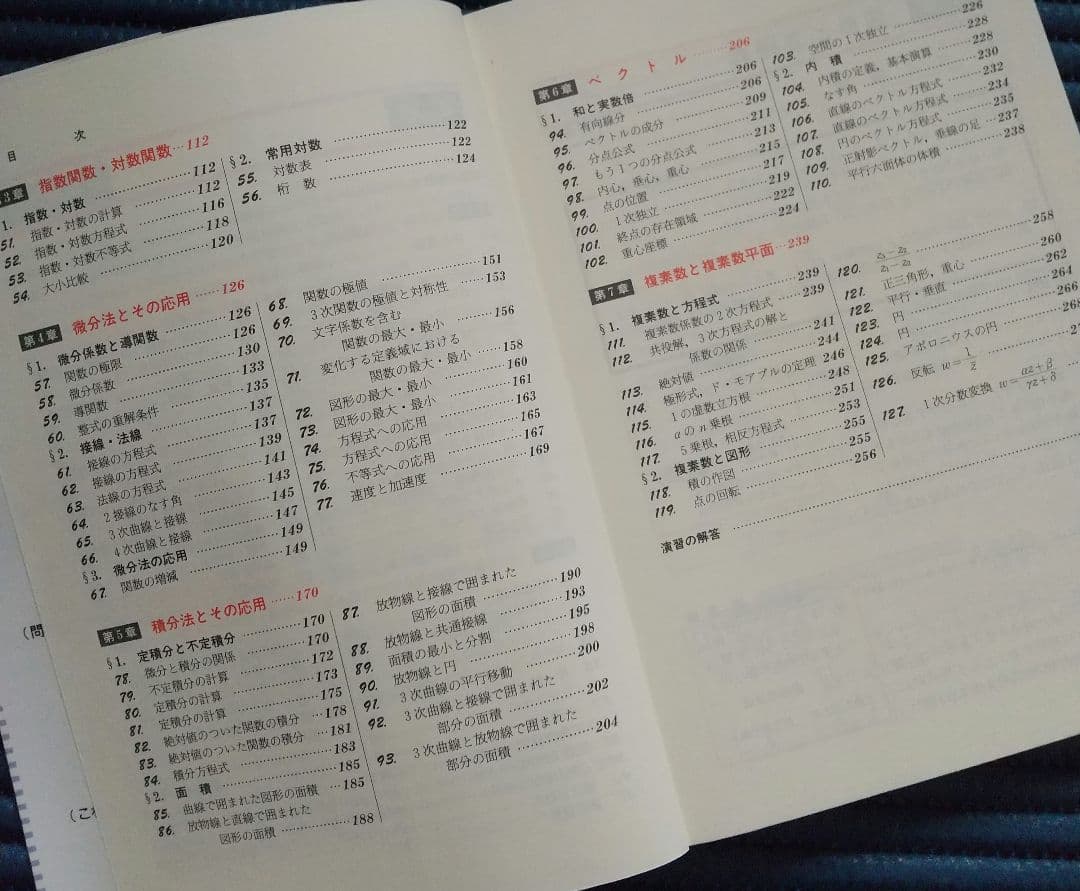 目 次
第3章 指数関数・対数関数…112
1. 指数・対数 …… 112
51. 指数・対数の計算 …… 112
52. 指数・対数方程式 …… 116
53. 指数・対数不等式 …… 118
54. 大小比較 …… 120
§2. 常用対数 …… 122
55. 対数表 …… 122
56. 桁 数 …… 124
第4章 微分法とその応用……126
§1. 微分係数と導関数 …… 126
57. 関数の極限 …… 126
58. 微分係数 …… 130
59. 導関数 …… 133
60. 整式の重解条件 …… 135
§2. 接線・法線 …… 137
61. 接線の方程式 …… 137
62. 接線の方程式 …… 139
63. 法線の方程式 …… 141
64. 2接線のなす角 …… 143
65. 3次曲線と接線 …… 145
66. 4次曲線と接線 …… 147
§3. 微分法の応用 …… 149
67. 関数の増減 …… 149
68. 関数の極値 …… 151
69. 3次関数の極値と対称性 …… 153
70. 文字係数を含む
関数の最大・最小 …… 156
71. 変化する定義域における
関数の最大・最小 … 158
72. 図形の最大・最小 …… 160
73. 図形の最大・最小 …… 161
74. 方程式への応用 …… 163
75. 方程式への応用 …… 165
76. 不等式への応用 …… 167
77. 速度と加速度 …… 169
第5章 積分法とその応用……170
§1. 定積分と不定積分 …… 170
78. 微分と積分の関係 …… 170
79. 不定積分の計算 …… 172
80. 定積分の計算 …… 173
81. 定積分の計算 …… 175
82. 絶対値のついた関数の積分 … 178
83. 絶対値のついた関数の積分 … 181
84. 積分方程式 …… 183
§2. 面 積 …… 185
85. 曲線で囲まれた図形の面積 … 185
86. 放物線と直線で囲まれた
図形の面積 …… 188
87. 放物線と接線で囲まれた
図形の面積 …… 190
88. 放物線と共通接線 …… 193
89. 面積の最小と分割 …… 195
90. 放物線と円 …… 198
91. 3次曲線の平行移動 …… 200
92. 3次曲線と接線で囲まれた
部分の面積 …… 202
93. 3次曲線と放物線で囲まれた
部分の面積 …… 204
第6章 ベ ク ト ル ……206
§1. 和と実数倍 …… 206
94. 有向線分 …… 206
95. ベクトルの成分 …… 209
96. 分点公式 …… 211
97. もう1つの分点公式 …… 213
98. 内心，垂心，重心 …… 215
99. 点の位置 …… 217
100. 1次独立 …… 219
101. 終点の存在領域 …… 222
102. 重心座標 …… 224
103. 空間の1次独立 …… 226
§2. 内 積 …… 228
104. 内積の定義，基本演算 …… 228
105. なす角 …… 230
106. 直線のベクトル方程式 …… 232
107. 直線のベクトル方程式 …… 234
108. 円のベクトル方程式 …… 235
109. 正射影ベクトル，垂線の足 … 237
110. 平行六面体の体積 …… 238
第7章 複素数と複素数平面…239
§1. 複素数と方程式 …… 239
111. 複素数係数の2次方程式 …… 239
112. 共役解，3次方程式の解と
係数の関係 …… 241
113. 絶対値 …… 244
114. 極形式，ド・モアブルの定理 246
115. 1の虚数立方根 …… 248
116. aのn乗根 …… 251
117. 5乗根，相反方程式 …… 253
§2. 複素数と図形 …… 255
118. 積の作図 …… 255
119. 点の回転 …… 256
120. …… 258
121. 正三角形，重心 …… 260
122. 平行・垂直 …… 262
123. 円 …… 264
124. 円 …… 266
125. アポロニウスの円
126. 反転 w=1/z
127. 1次分数変換 w=αz+β/γz+δ
演習の解答 ……
(問
(これ